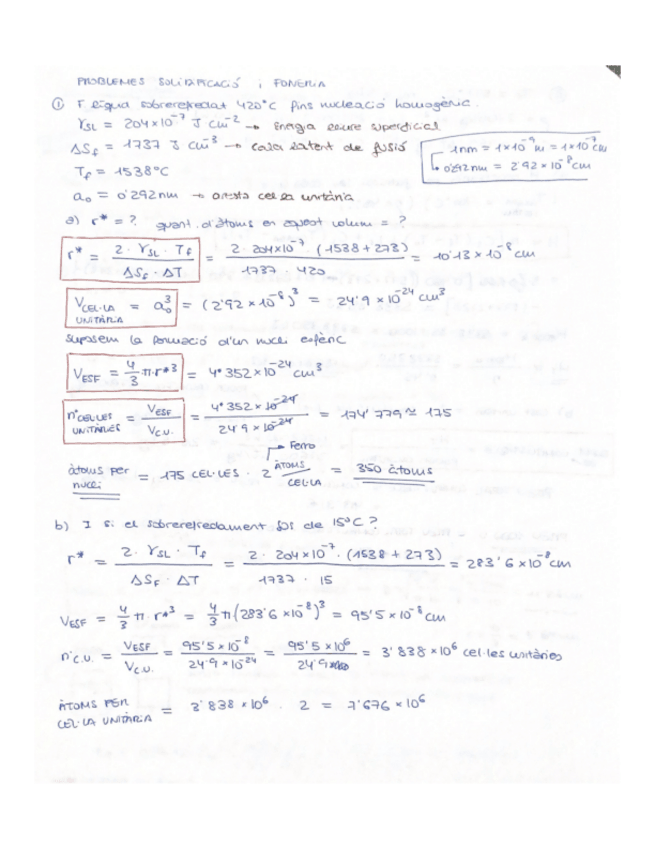 PROBLEMES SOLIDIFICACIÓ i FONERIA
① F líquid sobrerefredat 420°C fins nucleació homogènia.
γSL = 204×10⁻⁷ J cm⁻² → Energia lliure superficial
ΔSf = 1737 J cm⁻³ → calor latent de fusió
1nm = 1×10⁻⁹ m = 1×10⁻⁷ cm
↳ 0'292nm = 2'92×10⁻⁸ cm
Tf = 1538°C
a₀ = 0'292nm → aresta cel·la unitària
a) r* = ? quant. d'àtoms en aquest volum = ?
r* = 2·γSL·Tf / ΔSf·ΔT = 2·204×10⁻⁷·(1538+273) / 1737·420 = 10'13×10⁻⁸ cm
VCEL·LA UNITÀRIA = a₀³ = (2'92×10⁻⁸)³ = 24'9×10⁻²⁴ cm³
Suposem la formació d'un nucli esfèric
VESF = 4/3 π·r*³ = 4'352×10⁻²⁴ cm³
nºCEL·LES UNITÀRIES = VESF / VC.U. = 4'352×10⁻²⁴ / 24'9×10⁻²⁴ = 174'779 ≈ 175
→ Ferro
àtoms per nucli = 175 CEL·LES · 2 ÀTOMS / CEL·LA = 350 àtoms
b) I si el sobrerefredament fos de 15°C?
r* = 2·γSL·Tf / ΔSf·ΔT = 2·204×10⁻⁷·(1538+273) / 1737·15 = 283'6×10⁻⁸ cm
VESF = 4/3 π·r*³ = 4/3 π(283'6×10⁻⁸)³ = 95'5×10⁻⁸ cm
nºC.U. = VESF / VC.U. = 95'5×10⁻⁸ / 24'9×10⁻²⁴ = 95'5×10⁶ / 24'9 = 3'838×10⁶ cel·les unitàries
ÀTOMS PER CEL·LA UNITÀRIA = 3'838×10⁶ · 2 = 7'676×10⁶